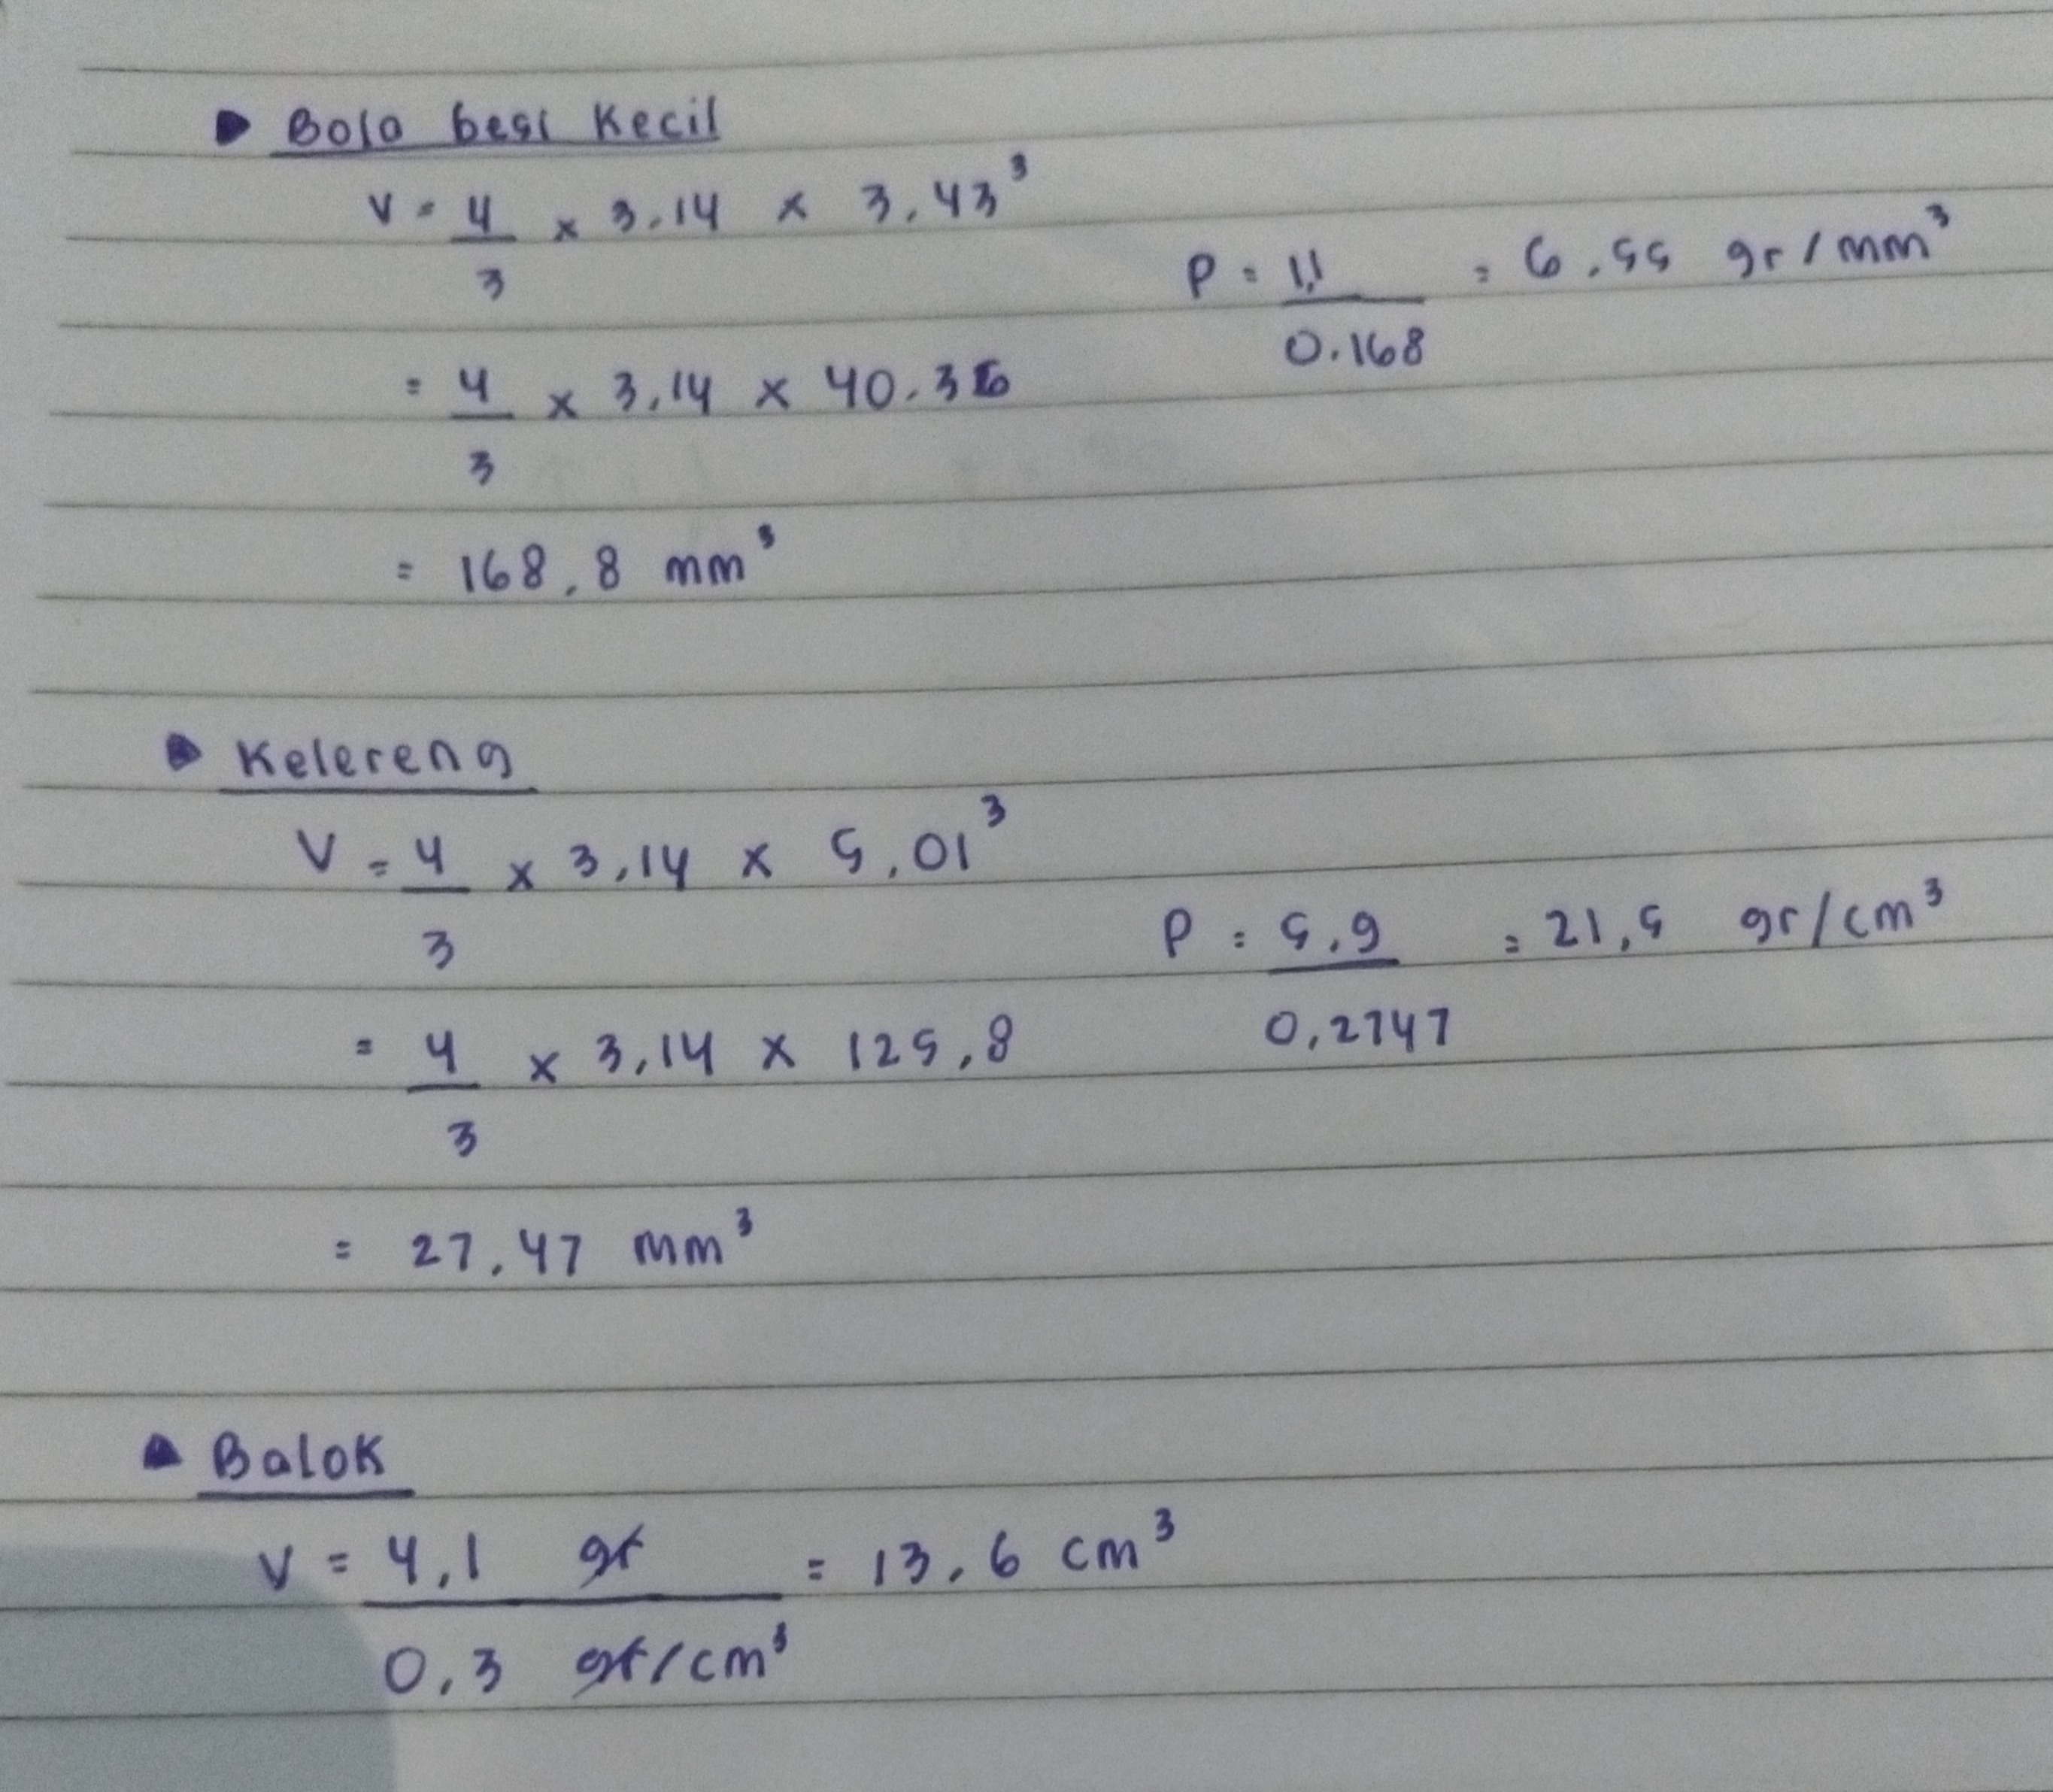 ▶ Bola besi Kecil
V = 4/3 x 3.14 x 3,43³
= 4/3 x 3,14 x 40.36
= 168,8 mm³
ρ = 1,1/0.168 = 6,55 gr/mm³
▶ Kelereng
V = 4/3 x 3,14 x 5,01³
= 4/3 x 3,14 x 125,8
= 27,47 mm³
ρ = 5,9/0,2747 = 21,5 gr/cm³
▶ Balok
V = 4,1 gr/0,3 gr/cm³ = 13,6 cm³